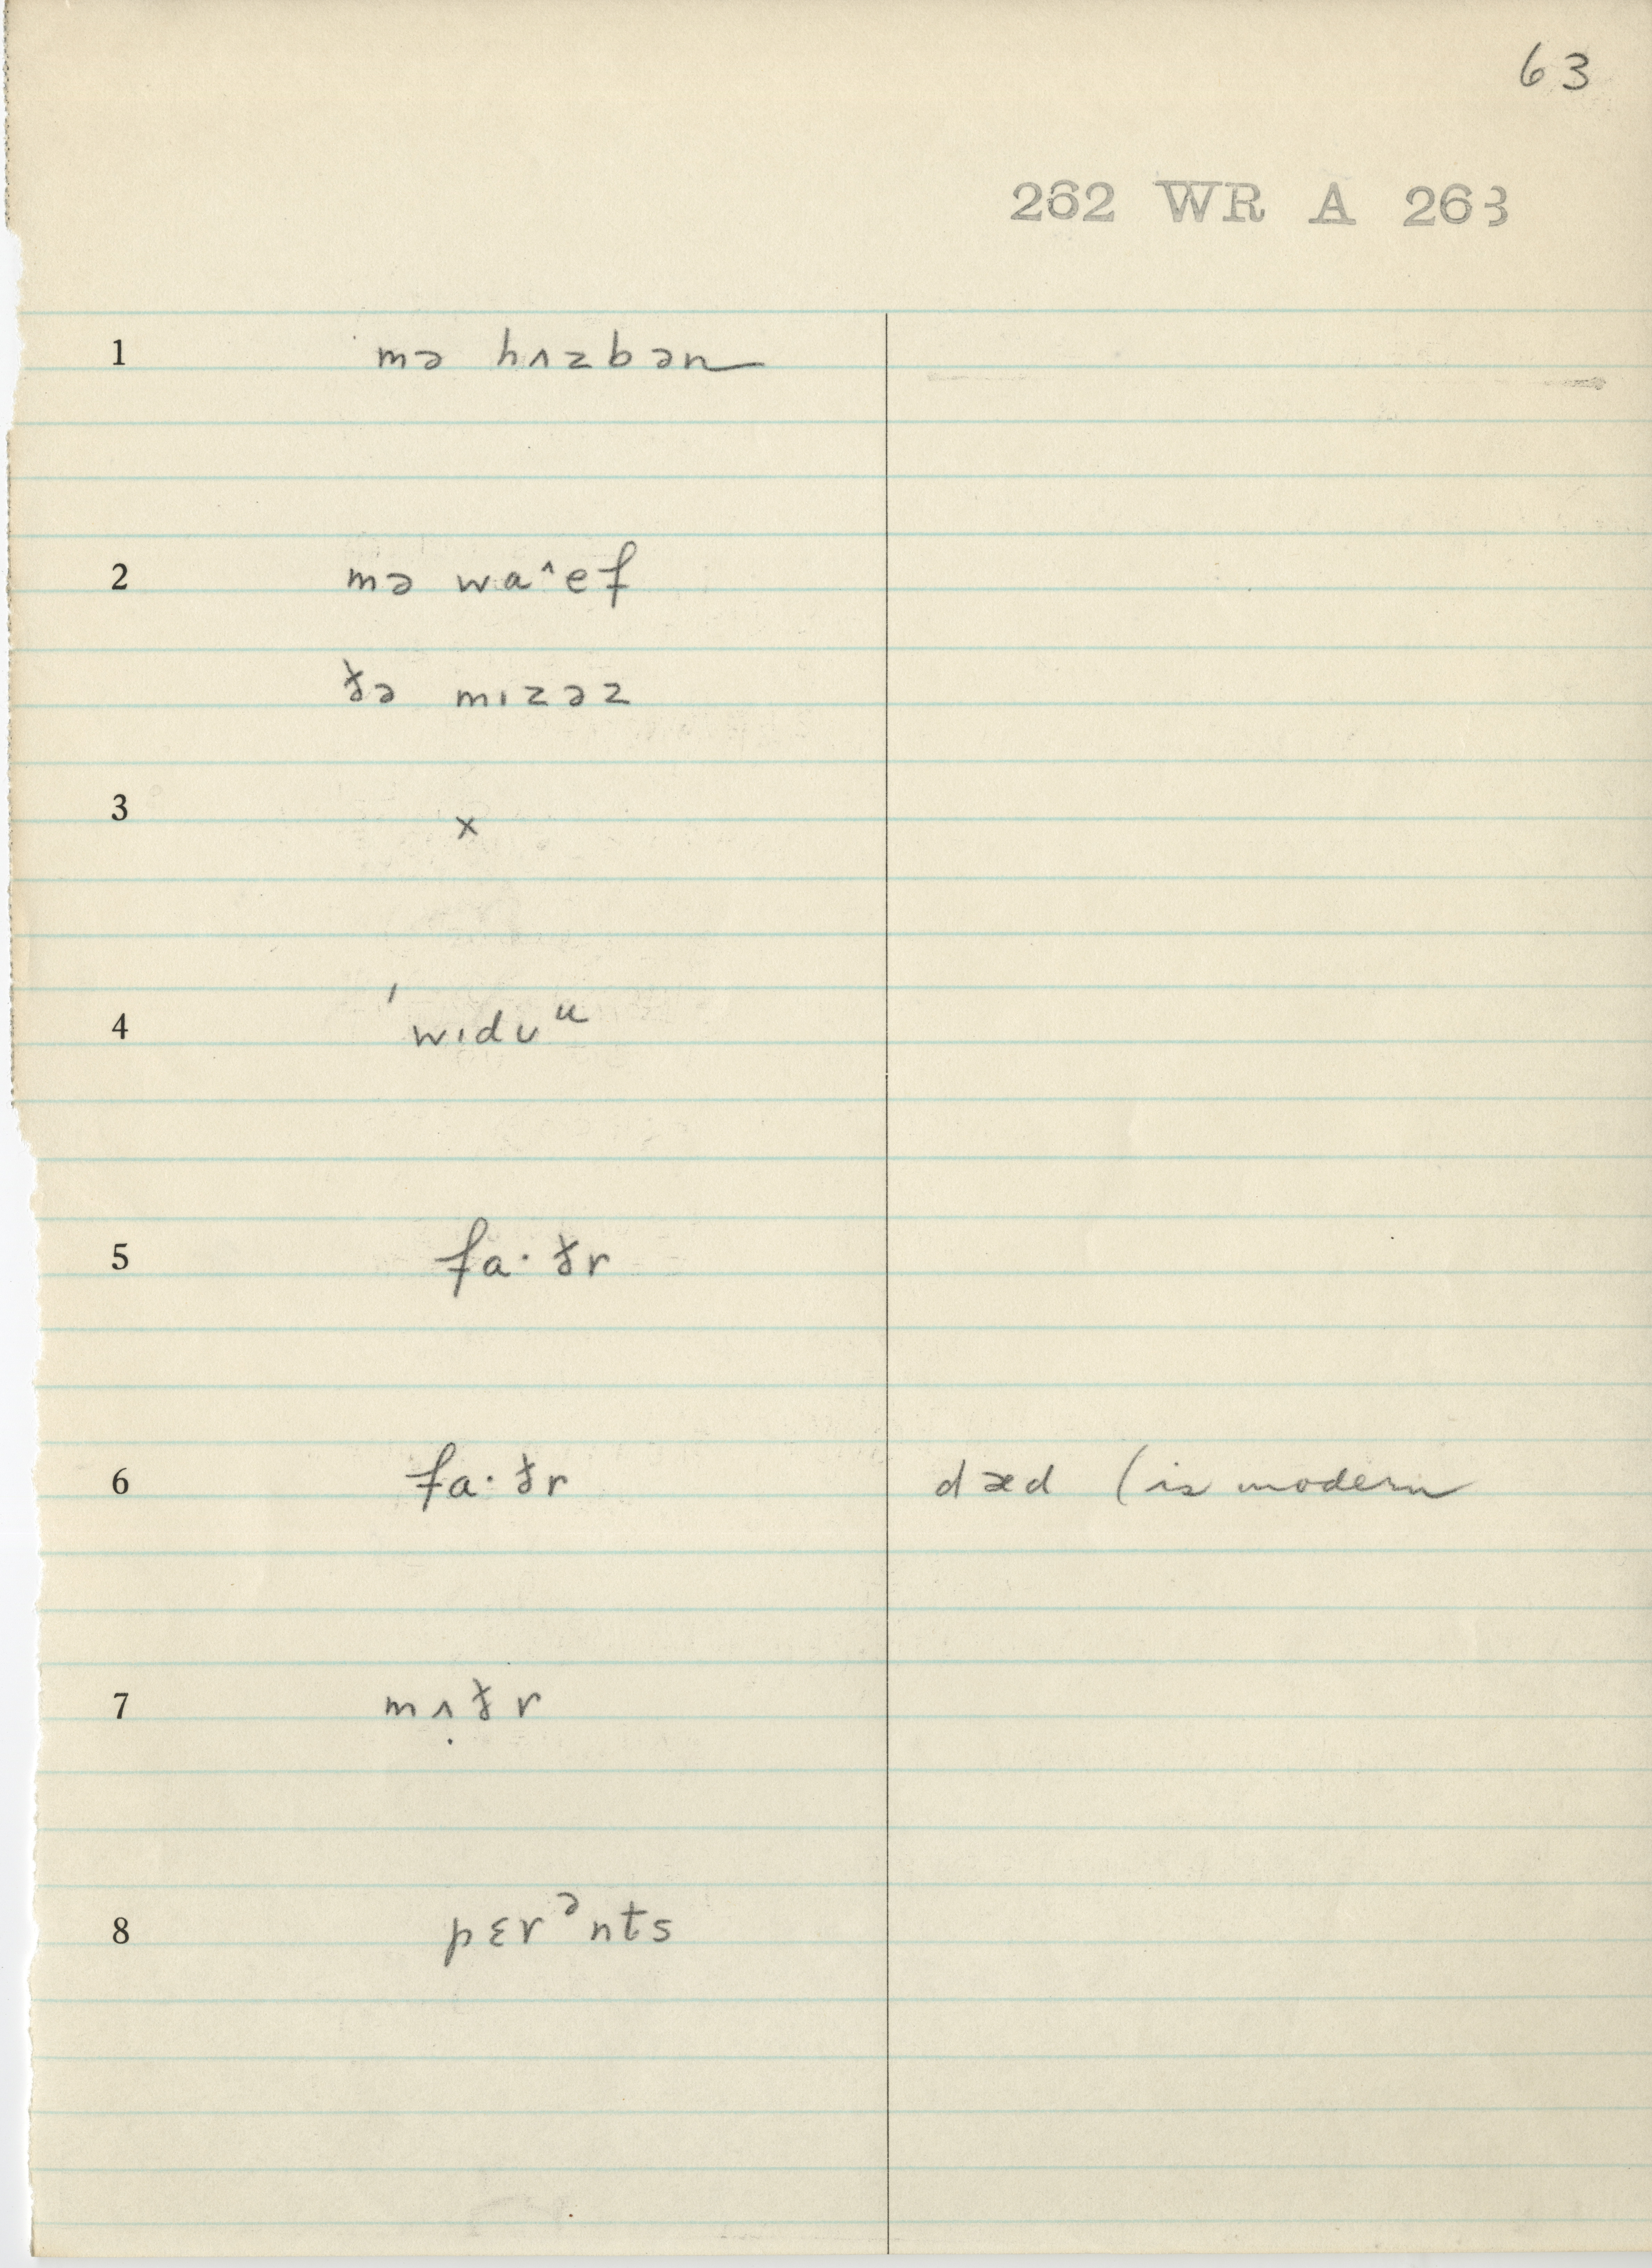 63
262 WR A 263
1 mə hʌzbən
2 mə waˆef
ðə mɪzəz
3 x
4 ˈwɪdʊᵘ
5 fa·ðr
6 fa·ðr dæd (is modern
7 mʌ̣ðr
8 pɛrᵊnts